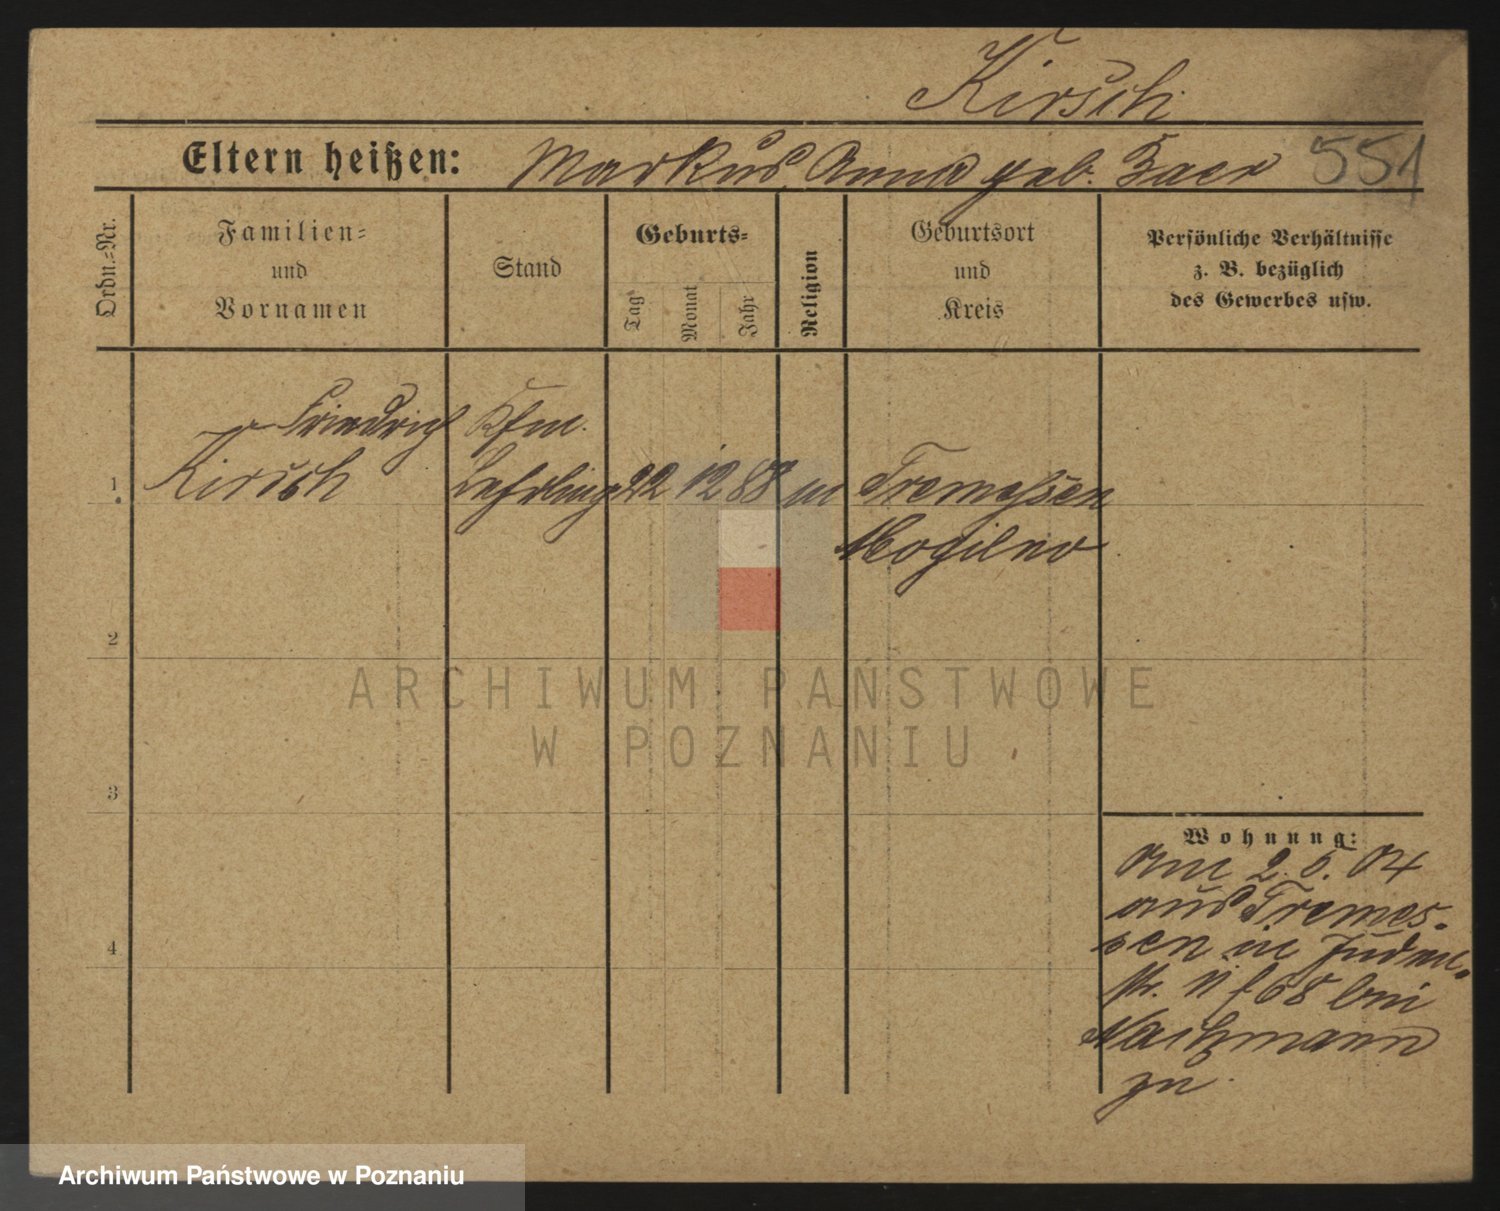 Kirsch
Eltern heißen: Markus, Anna geb. Baer 551
Ordn.-Nr.
Familien-
und
Vornamen
Stand
Geburts-
Tag
Monat
Jahr
Religion
Geburtsort
und
Kreis
Persönliche Verhältnisse
z. B. bezüglich
des Gewerbes usw.
Friedrich Kfm.
1 Kirsch Lehrling 22 12 88 m Tremessen
Mogilno
2
ARCHIWUM PAŃSTWOWE
W POZNANIU
3
Wohnung:
Am 2. 5. 04
aus Tremes-
4 sen in Juden-
str. 11 bei
zu
Archiwum Państwowe w Poznaniu